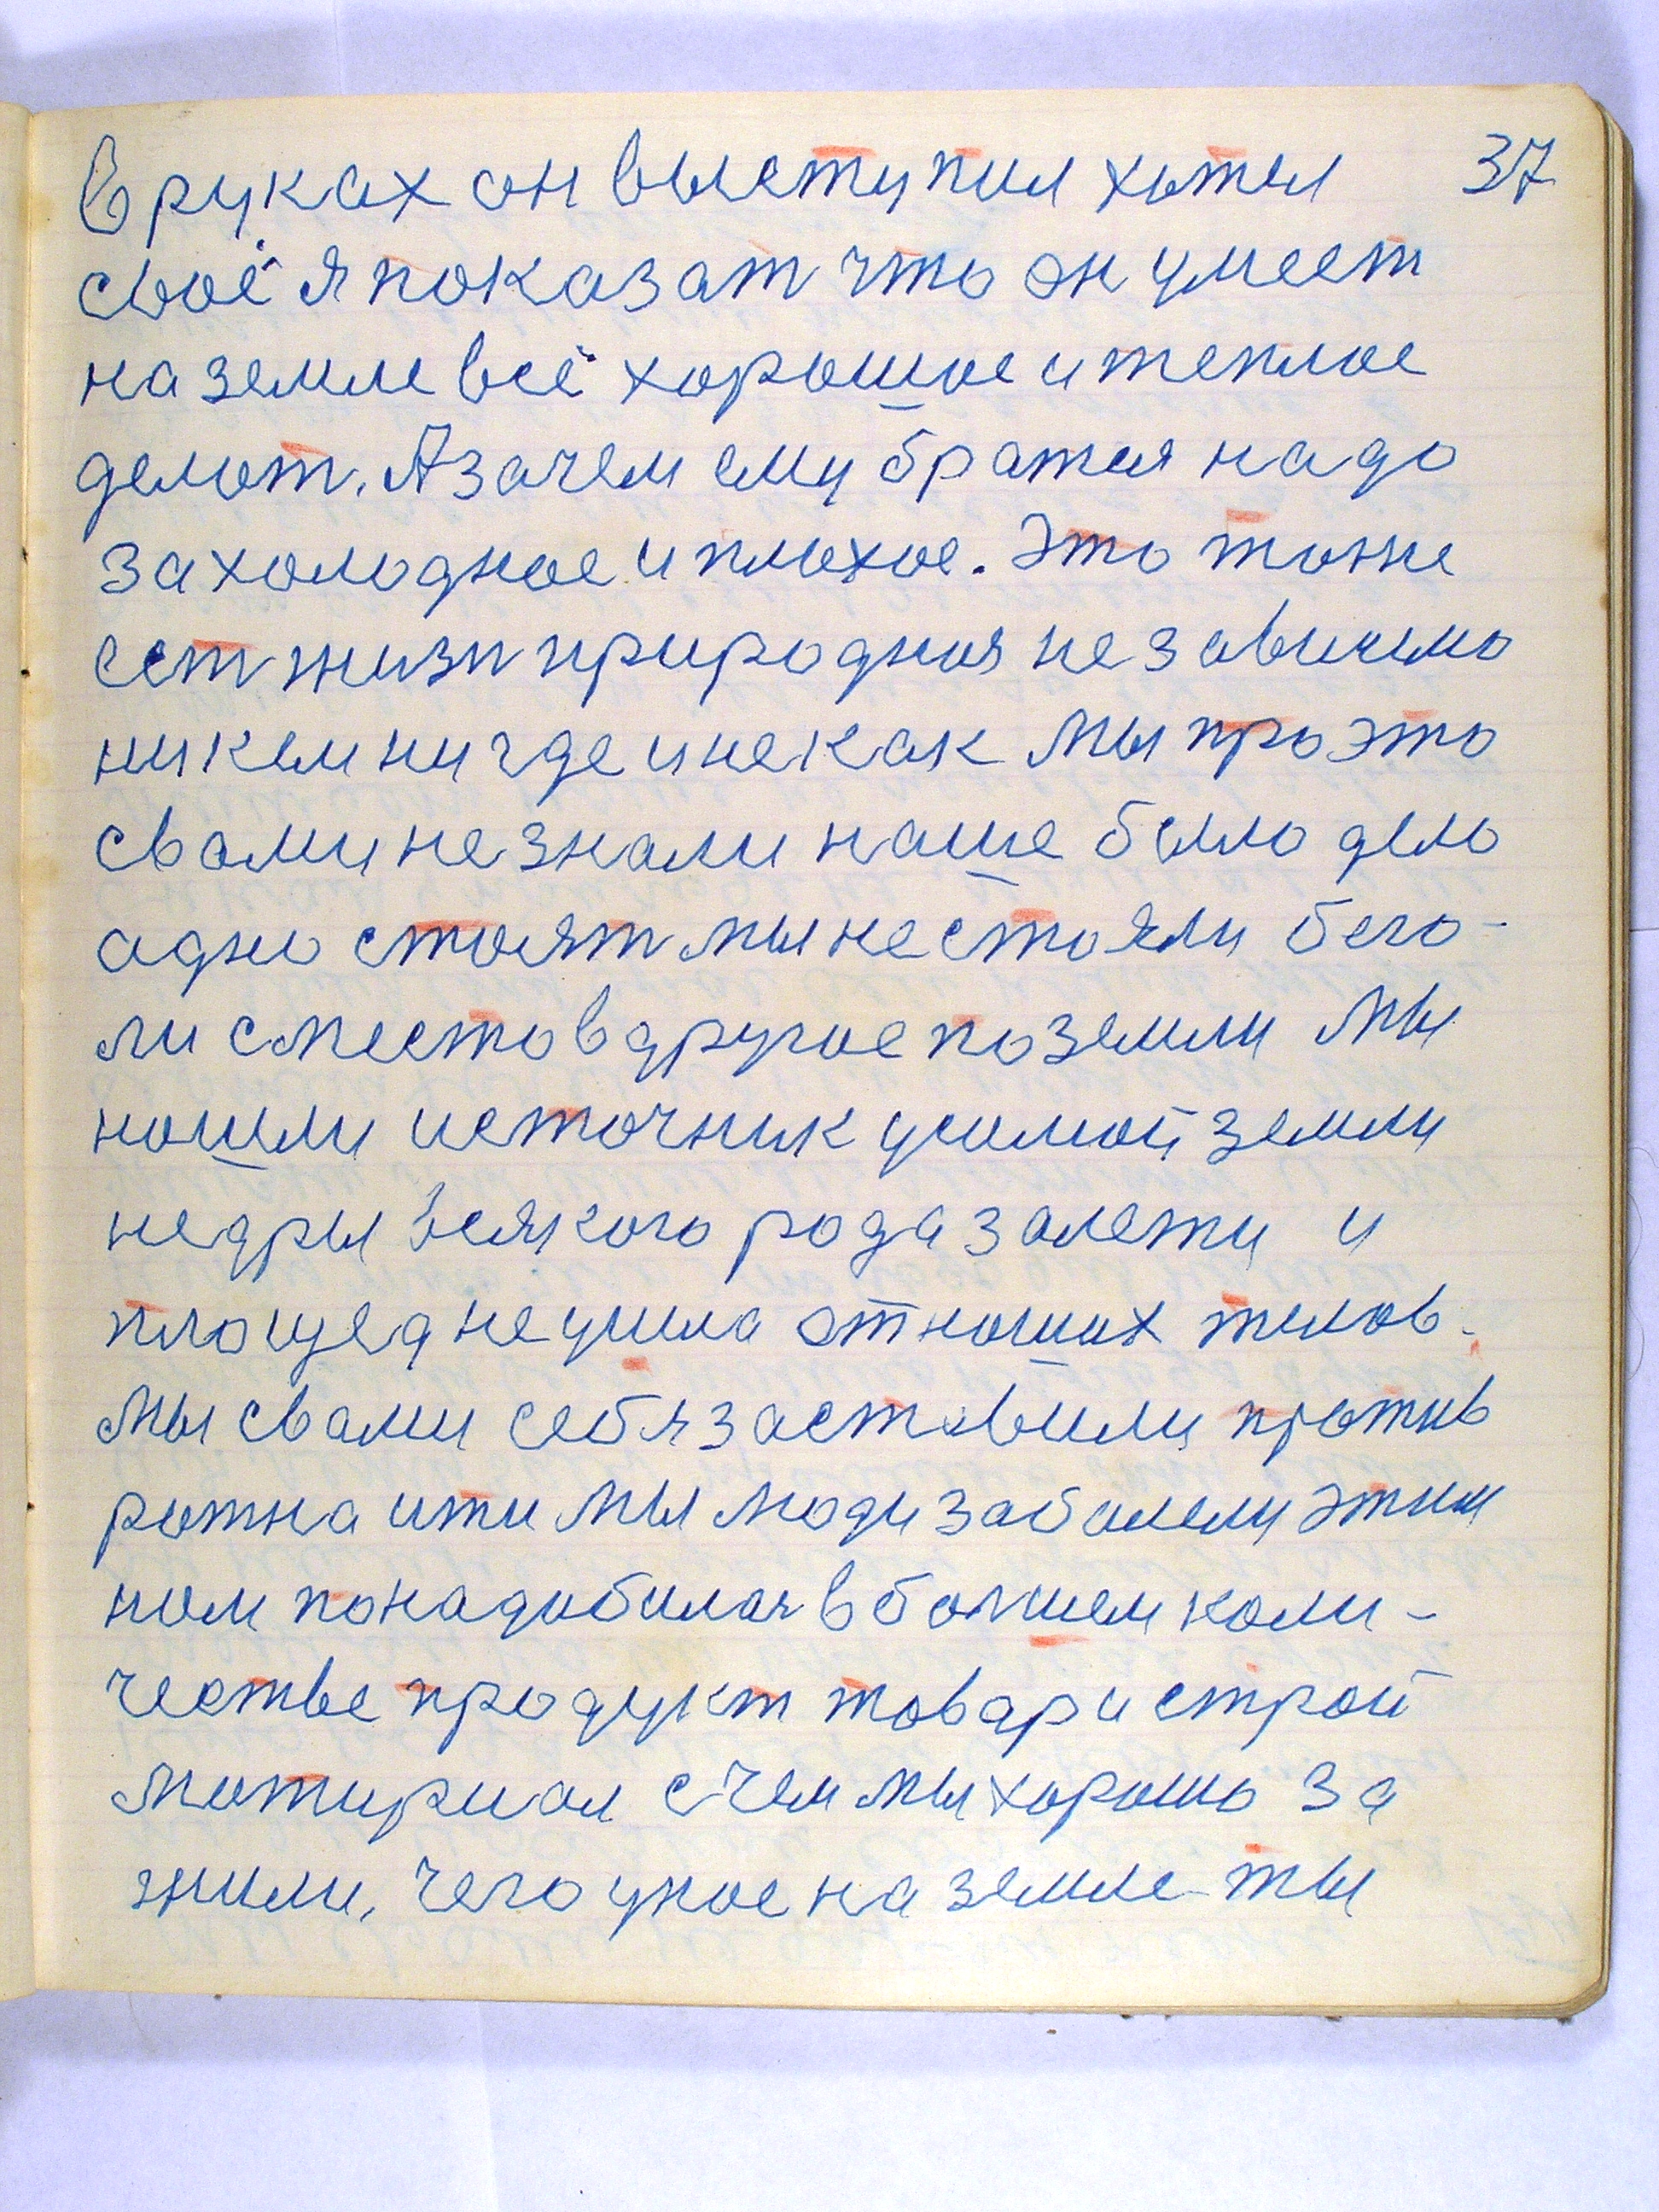 37
В руках он выступил хотел
своё я показат что он умеет
на земле всё хорошое и теплое
делат. А зачем ему братся надо
за холодное и плохое. Это тоже
ест жизн природная независимо
ни кем ни где и не как Мы про это
с вами не знали наше было дело
адно стоят мы не стояли бега-
ли с место в другое по земли Мы
нашли источник у самой земли
недры всякого рода залети и
площед не ушла от наших телов.
Мы с вами себя заставили против
рожна ити Мы люди заболели этим
нам понадобилас в болшем коли-
честве продукт товар и строй
матириал с чем мы хорошо за
жили, чего у кое на земле ты